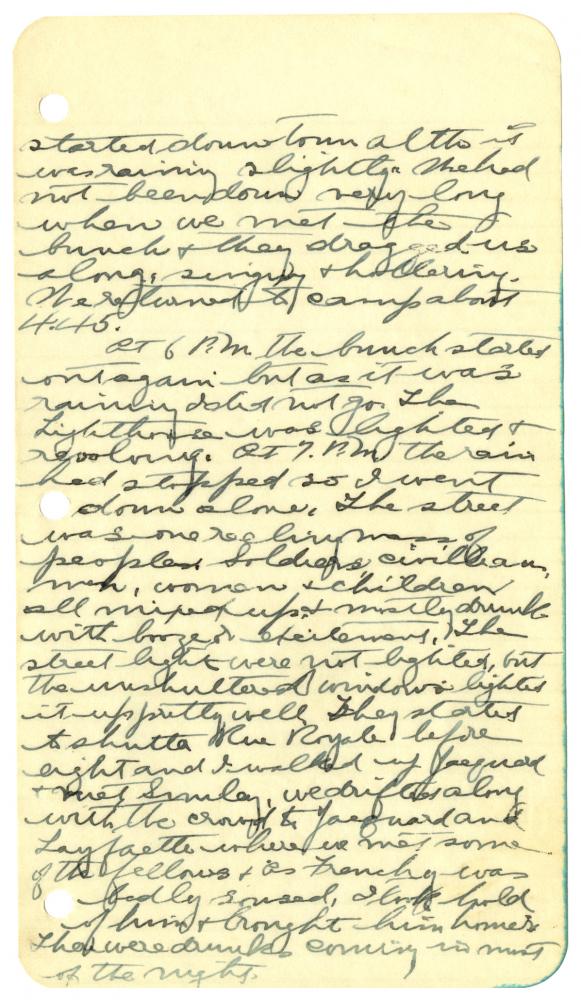 started down town altho it
was raining slightly. We had
not been down very long
when we met the
bunch & they dragged us
along, singing & hollering.
We returned to camp about
4:45.
At 6 P.M. the bunch started
out again but as it was
raining I did not go. The
Lighthouse was lighted &
revolving. At 7. P.M. the rain
had stopped so I went
down alone. The street
was one reeling mass of
people. Soldiers, civillian,
men, women & children
all mixed up & mostly drunk
with booze & excitement. The
street light were not lighted, but
the unshuttered windows lighted
it up pretty well. They started
to shutta Rue Royale before
eight and I walked up Jaequard
& met Smiley, we drifted along
with the crowd to Jaequard and
Layfaette where we met some
of the fellows & as Frenchy was
badly soused, I took hold
of him & brought him home.
There were drunks coming in most
of the night.